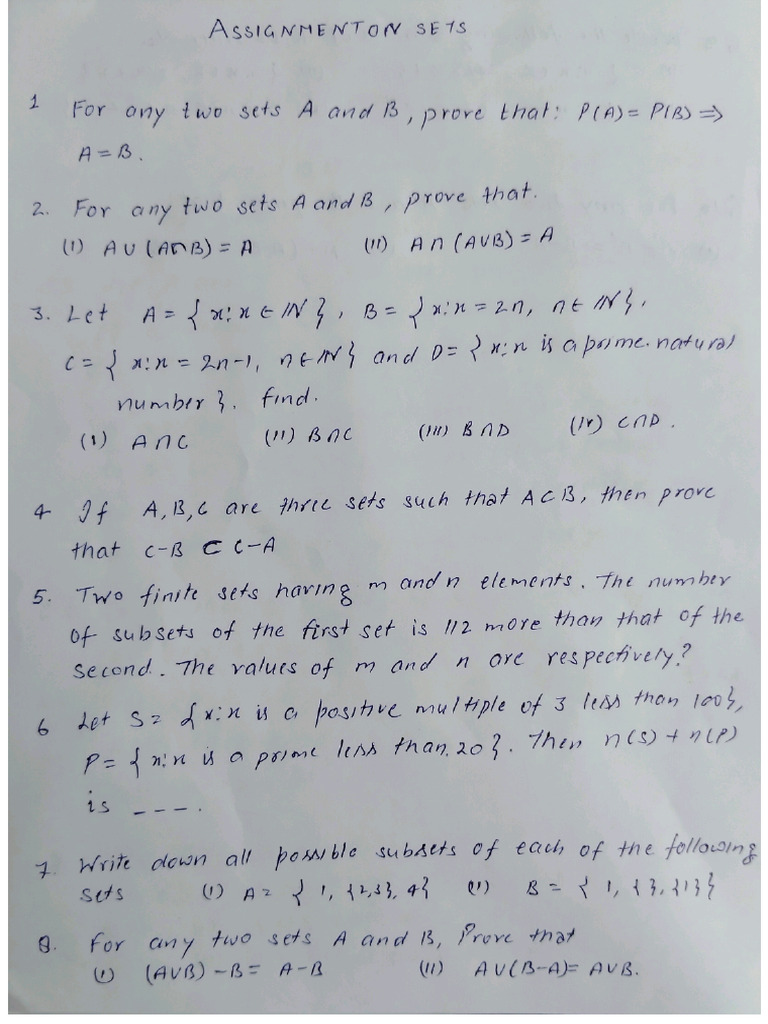 ASSIGNMENT ON SETS
1 For any two sets A and B, prove that: P(A) = P(B) ⇒
A = B.
2. For any two sets A and B, prove that.
(I) A ∪ (A ∩ B) = A (II) A ∩ (A ∪ B) = A
3. Let A = { x : x ∈ ℕ }, B = { x : x = 2n, n ∈ ℕ },
C = { x : x = 2n-1, n ∈ ℕ } and D = { x : x is a prime natural
number }. find.
(I) A ∩ C (II) B ∩ C (III) B ∩ D (IV) C ∩ D.
4 If A, B, C are three sets such that A ⊂ B, then prove
that C-B ⊂ C-A
5. Two finite sets having m and n elements. The number
of subsets of the first set is 112 more than that of the
second. The values of m and n are respectively?
6 Let S = {x : x is a positive multiple of 3 less than 100},
P = { x : x is a prime less than 20 }. Then n(S) + n(P)
is ---.
7. Write down all possible subsets of each of the following
sets (I) A = { 1, {2,3}, 4} (II) B = { 1, { }, {1}}
8. For any two sets A and B, Prove that
(I) (A∪B) - B = A - B (II) A∪(B-A) = A∪B.